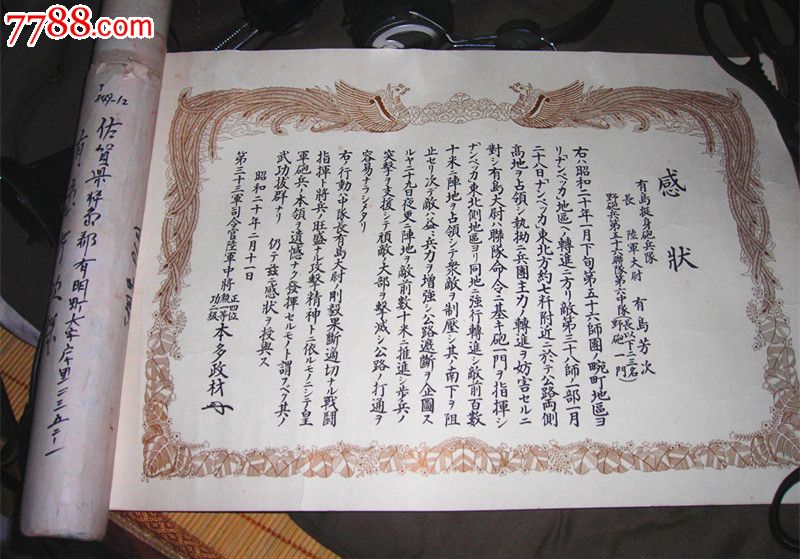 7788.com
感状
有島挺身砲兵隊
長 陸軍大尉 有島芳次
野砲兵第五十六聯隊第六中隊(長以下二三名
野砲一門)
右ハ昭和二十年一月下旬第五十六師團ノ畹町地區ヨ
リ「ナンパッカ」地區ヘ轉進ニ方リ敵第三十八師ノ一部一月
二十八日「ナンパッカ」東北方約七粁附近ニ於テ公路両側
高地ヲ占領シ執拗ニ兵團主力ノ轉進ヲ妨害セルニ
對シ有島大尉ハ聯隊命令ニ基キ砲一門ヲ指揮シ
「ナンパッカ」東北側地區ヨリ同地ニ強行轉進シ敵前百数
十米ニ陣地ヲ占領シテ衆敵ヲ制壓シ其ノ南下ヲ阻
止セリ次テ敵ハ益〻兵力ヲ増強シ公路遮斷ヲ企圖ス
ルヤ二十九日夜更ニ陣地ヲ敵前数十米ニ推進シ歩兵ノ
突撃ヲ支援シテ頑敵ノ大部ヲ撃滅シ公路ノ打通ヲ
容易ナラシメタリ
右ノ行動ハ中隊長有島大尉ノ剛毅果斷適切ナル戰闘
指揮ト將兵ノ旺盛ナル攻撃精神トニ依ルモノニシテ皇
軍砲兵ノ本領ヲ遺憾ナク發揮セルモノト謂フベク其ノ
武功抜群ナリ 仍テ茲ニ感状ヲ授與ス
昭和二十年二月十一日
第三十三軍司令官陸軍中將 正四位勲一等功二級 本多政材
849-12
佐賀県杵島郡有明町大字